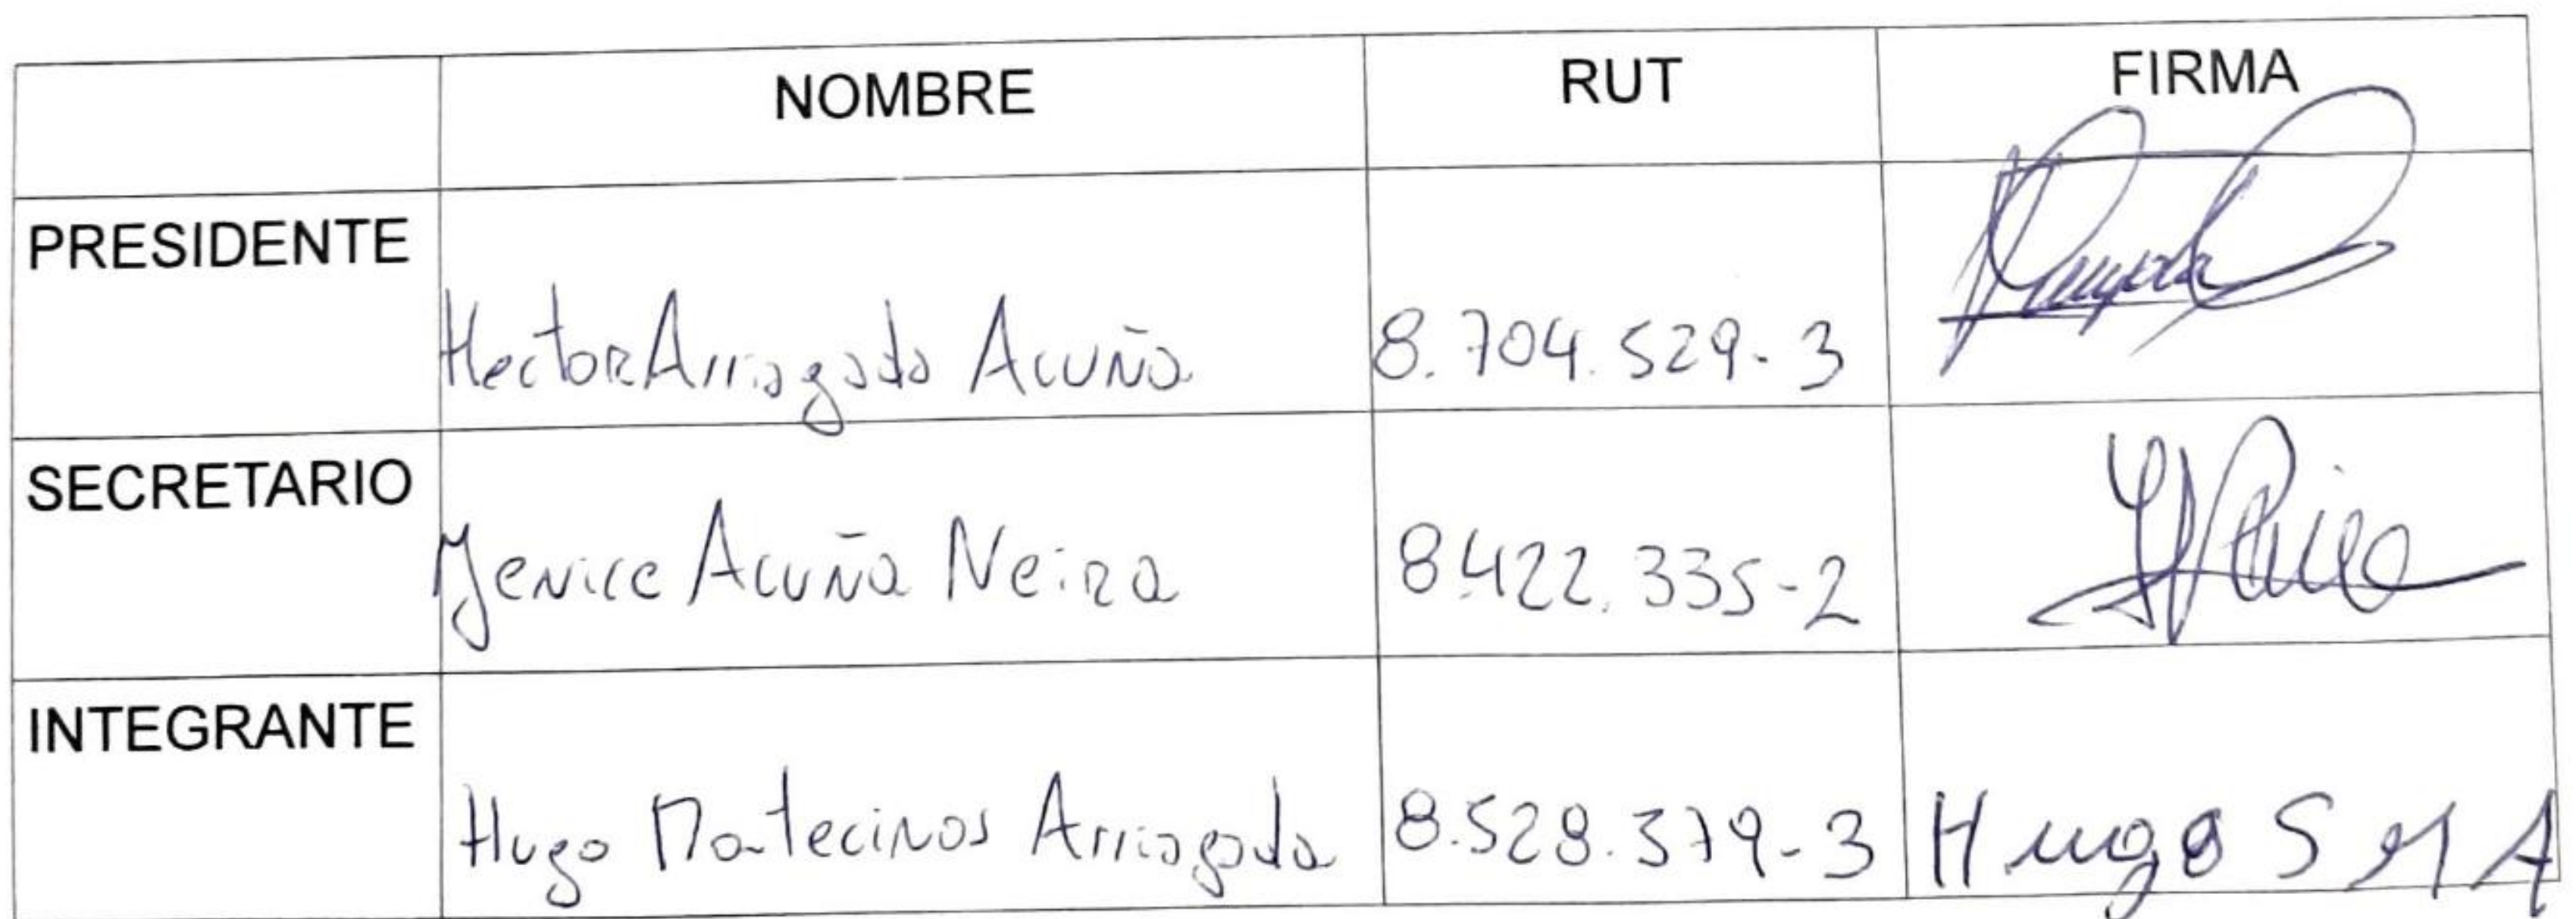 NOMBRE RUT FIRMA
PRESIDENTE
Hector Arriagada Acuña 8.704.529-3
SECRETARIO
Jenice Acuña Neira 8.422.335-2
INTEGRANTE
Hugo Montecinos Arriagada 8.528.379-3 Hugo S M A